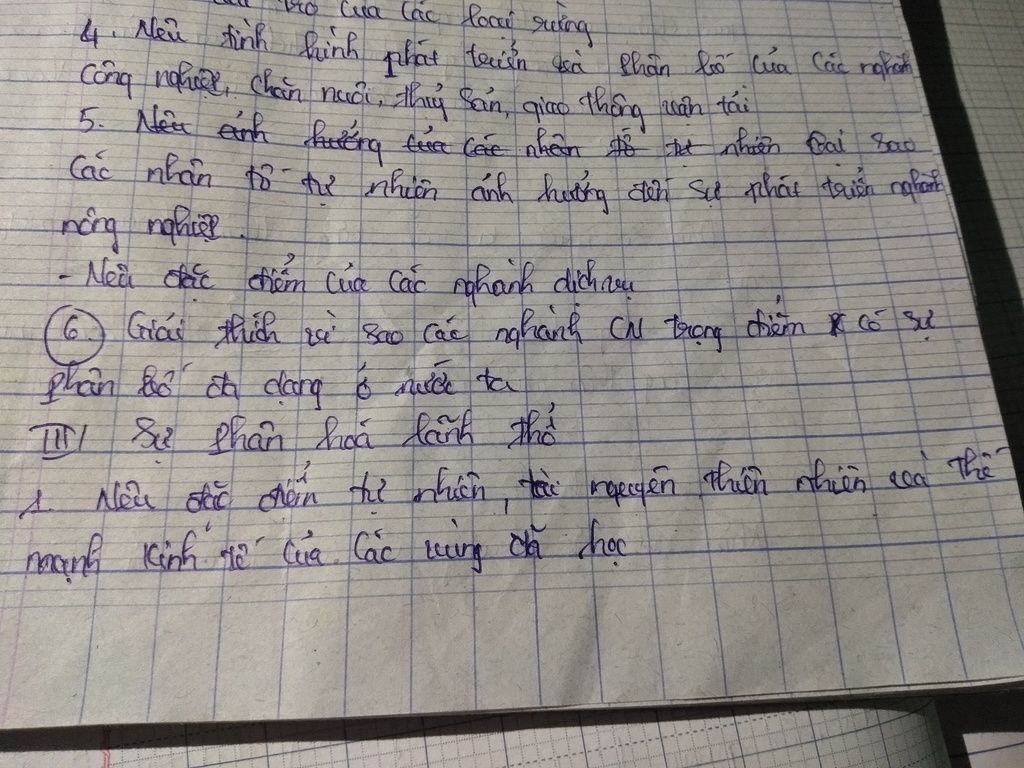 trò của các loại rừng
4. Nêu tình hình phát triển và phân bố của các nghành
công nghiệp, chăn nuôi, thuỷ sản, giao thông vận tải
5. Nêu ảnh hưởng của các nhân tố tự nhiên Tại sao
các nhân tố tự nhiên ảnh hưởng đến sự phát triển nghành
nông nghiệp.
- Nêu đặc điểm của các nghành dịch vụ
6. Giải thích vì sao các nghành CN trọng điểm có sự
phân bố đa dạng ở nước ta
III/ Sự phân hoá lãnh thổ
1. Nêu đặc điểm tự nhiên, tài nguyên thiên nhiên và thế
mạnh kinh tế của các vùng đã học